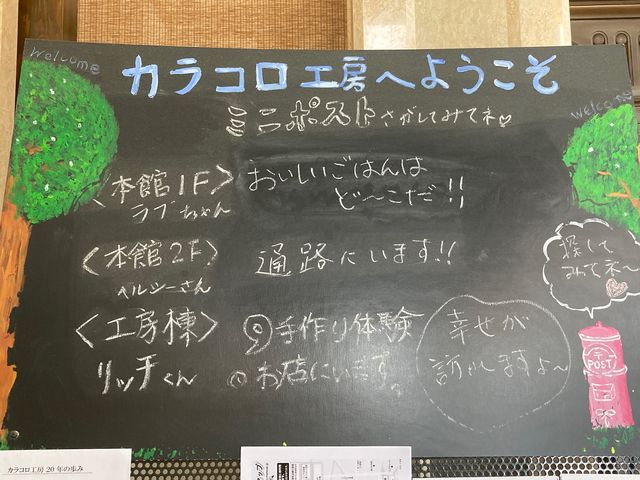 welcome
カラコロ工房へようこそ
welcome
ミニポストさがしてみてネ♡
〈本館1F〉
ラブちゃん
おいしいごはんは
ど〜こだ!!
〈本館2F〉
ヘルシーさん
通路にいます!!
〈工房棟〉
リッチくん
手作り体験
お店にいます。
幸せが
訪れますよ〜
探して
みてネ〜
〒
POST
カラコロ工房 20年の歩み